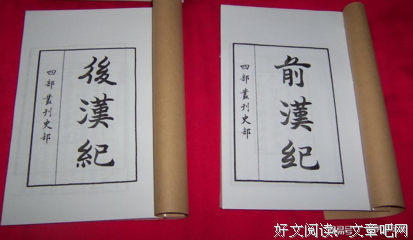 後漢紀
四部叢刊史部
前漢紀
四部叢刊史部
好文阅读
文章吧网